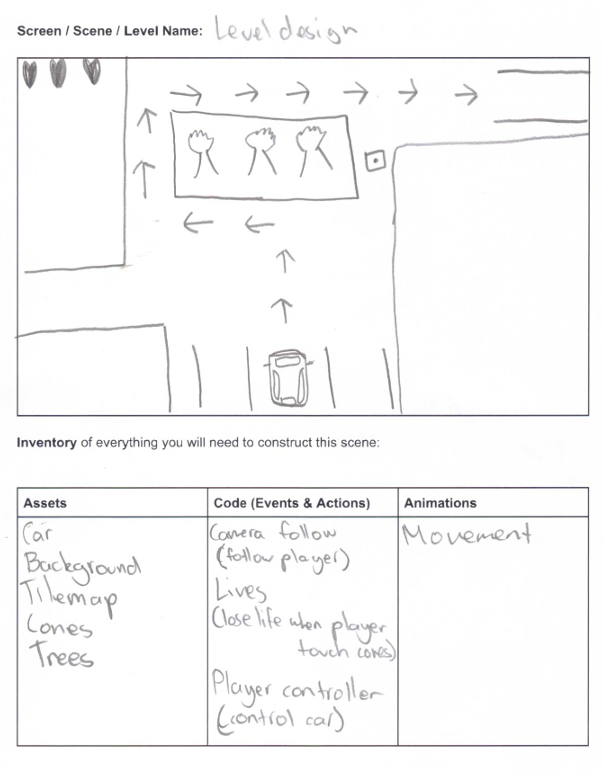 Screen / Scene / Level Name: Level design
Inventory of everything you will need to construct this scene:
Assets
Code (Events & Actions)
Animations
Car
Background
Tilemap
Cones
Trees
Camera follow
(follow player)
Lives
(lose life when player
touch cones)
Player controller
(control car)
Movement